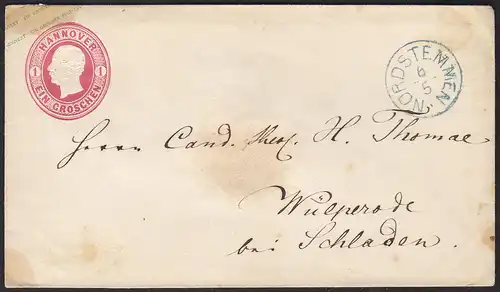 HANNOVER
1 1
EIN GROSCHEN
NORDSTEMMEN
6
5
Herrn Cand. theol. H. Thomae
Wülperode
bei Schladen.